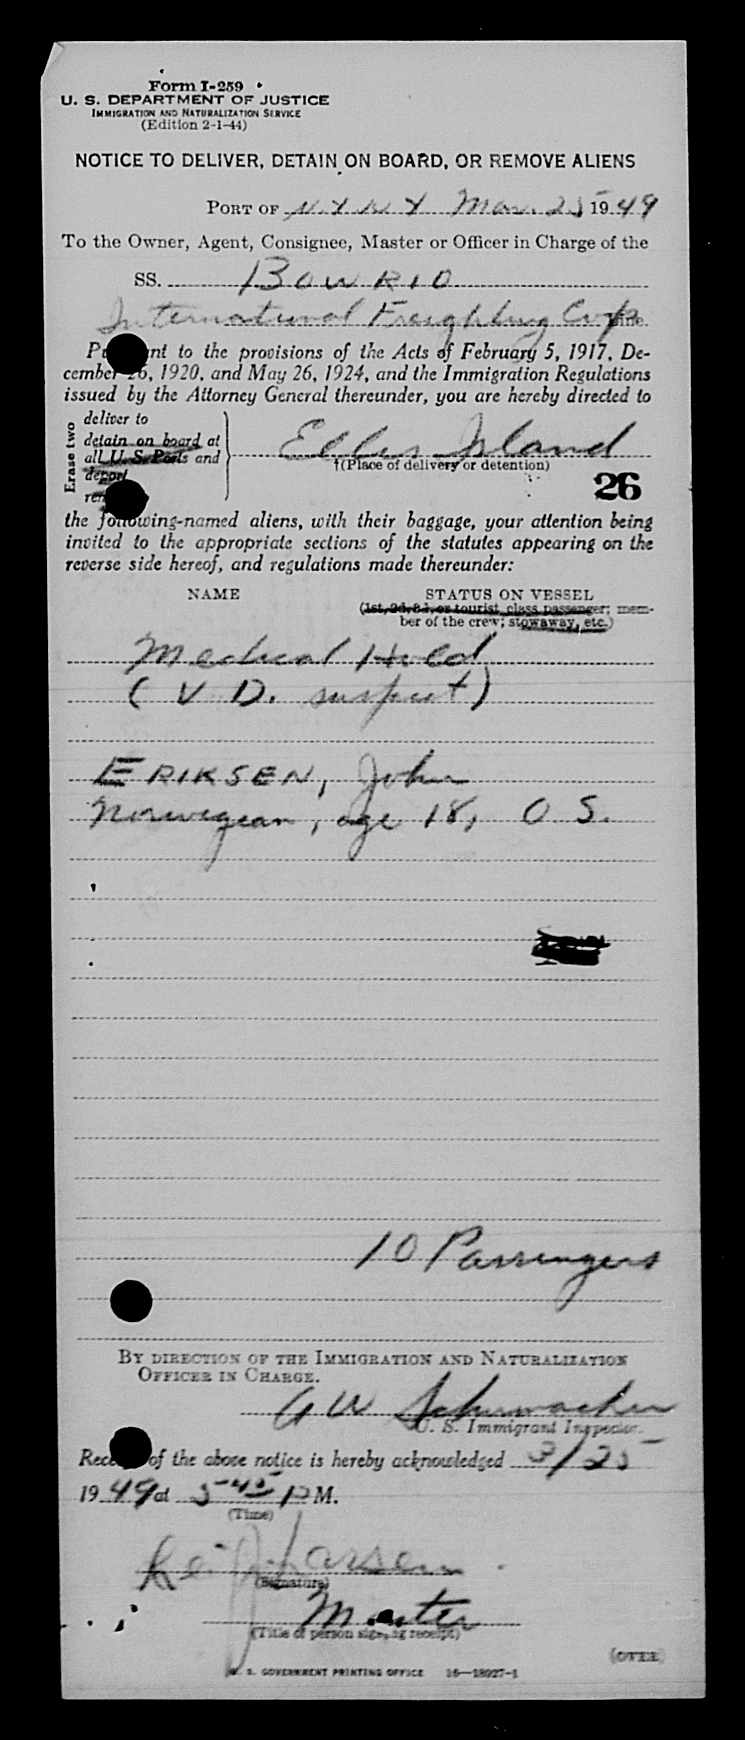 Form I-259
U. S. DEPARTMENT OF JUSTICE
IMMIGRATION AND NATURALIZATION SERVICE
(Edition 2-1-44)
NOTICE TO DELIVER, DETAIN ON BOARD, OR REMOVE ALIENS
PORT OF N.Y N Y Mar. 25 1949
To the Owner, Agent, Consignee, Master or Officer in Charge of the
SS. BOW RIO
International Freighting Corp Line
Pursuant to the provisions of the Acts of February 5, 1917, De-
cember 26, 1920, and May 26, 1924, and the Immigration Regulations
issued by the Attorney General thereunder, you are hereby directed to
Erase two
deliver to
detain on board at
all U. S. Ports and
deport
Ellis Island
†(Place of delivery or detention)
26
the following-named aliens, with their baggage, your attention being
invited to the appropriate sections of the statutes appearing on the
reverse side hereof, and regulations made thereunder:
NAME STATUS ON VESSEL
(1st, 2d, 3d, or tourist class passenger; mem-
ber of the crew; stowaway, etc.)
Medical Hold
(V D. suspect)
ERIKSEN, John
Norwegian, age 18, O S.
10 Passengers
BY DIRECTION OF THE IMMIGRATION AND NATURALIZATION
OFFICER IN CHARGE.
G W Schumacher
U. S. Immigrant Inspector.
Receipt of the above notice is hereby acknowledged 3/25
1949 at 5 45 P M.
(Time)
Leif Larsen
(Signature)
Master
(Title of person signing receipt)
(OVER)
U. S. GOVERNMENT PRINTING OFFICE 16—18927-1